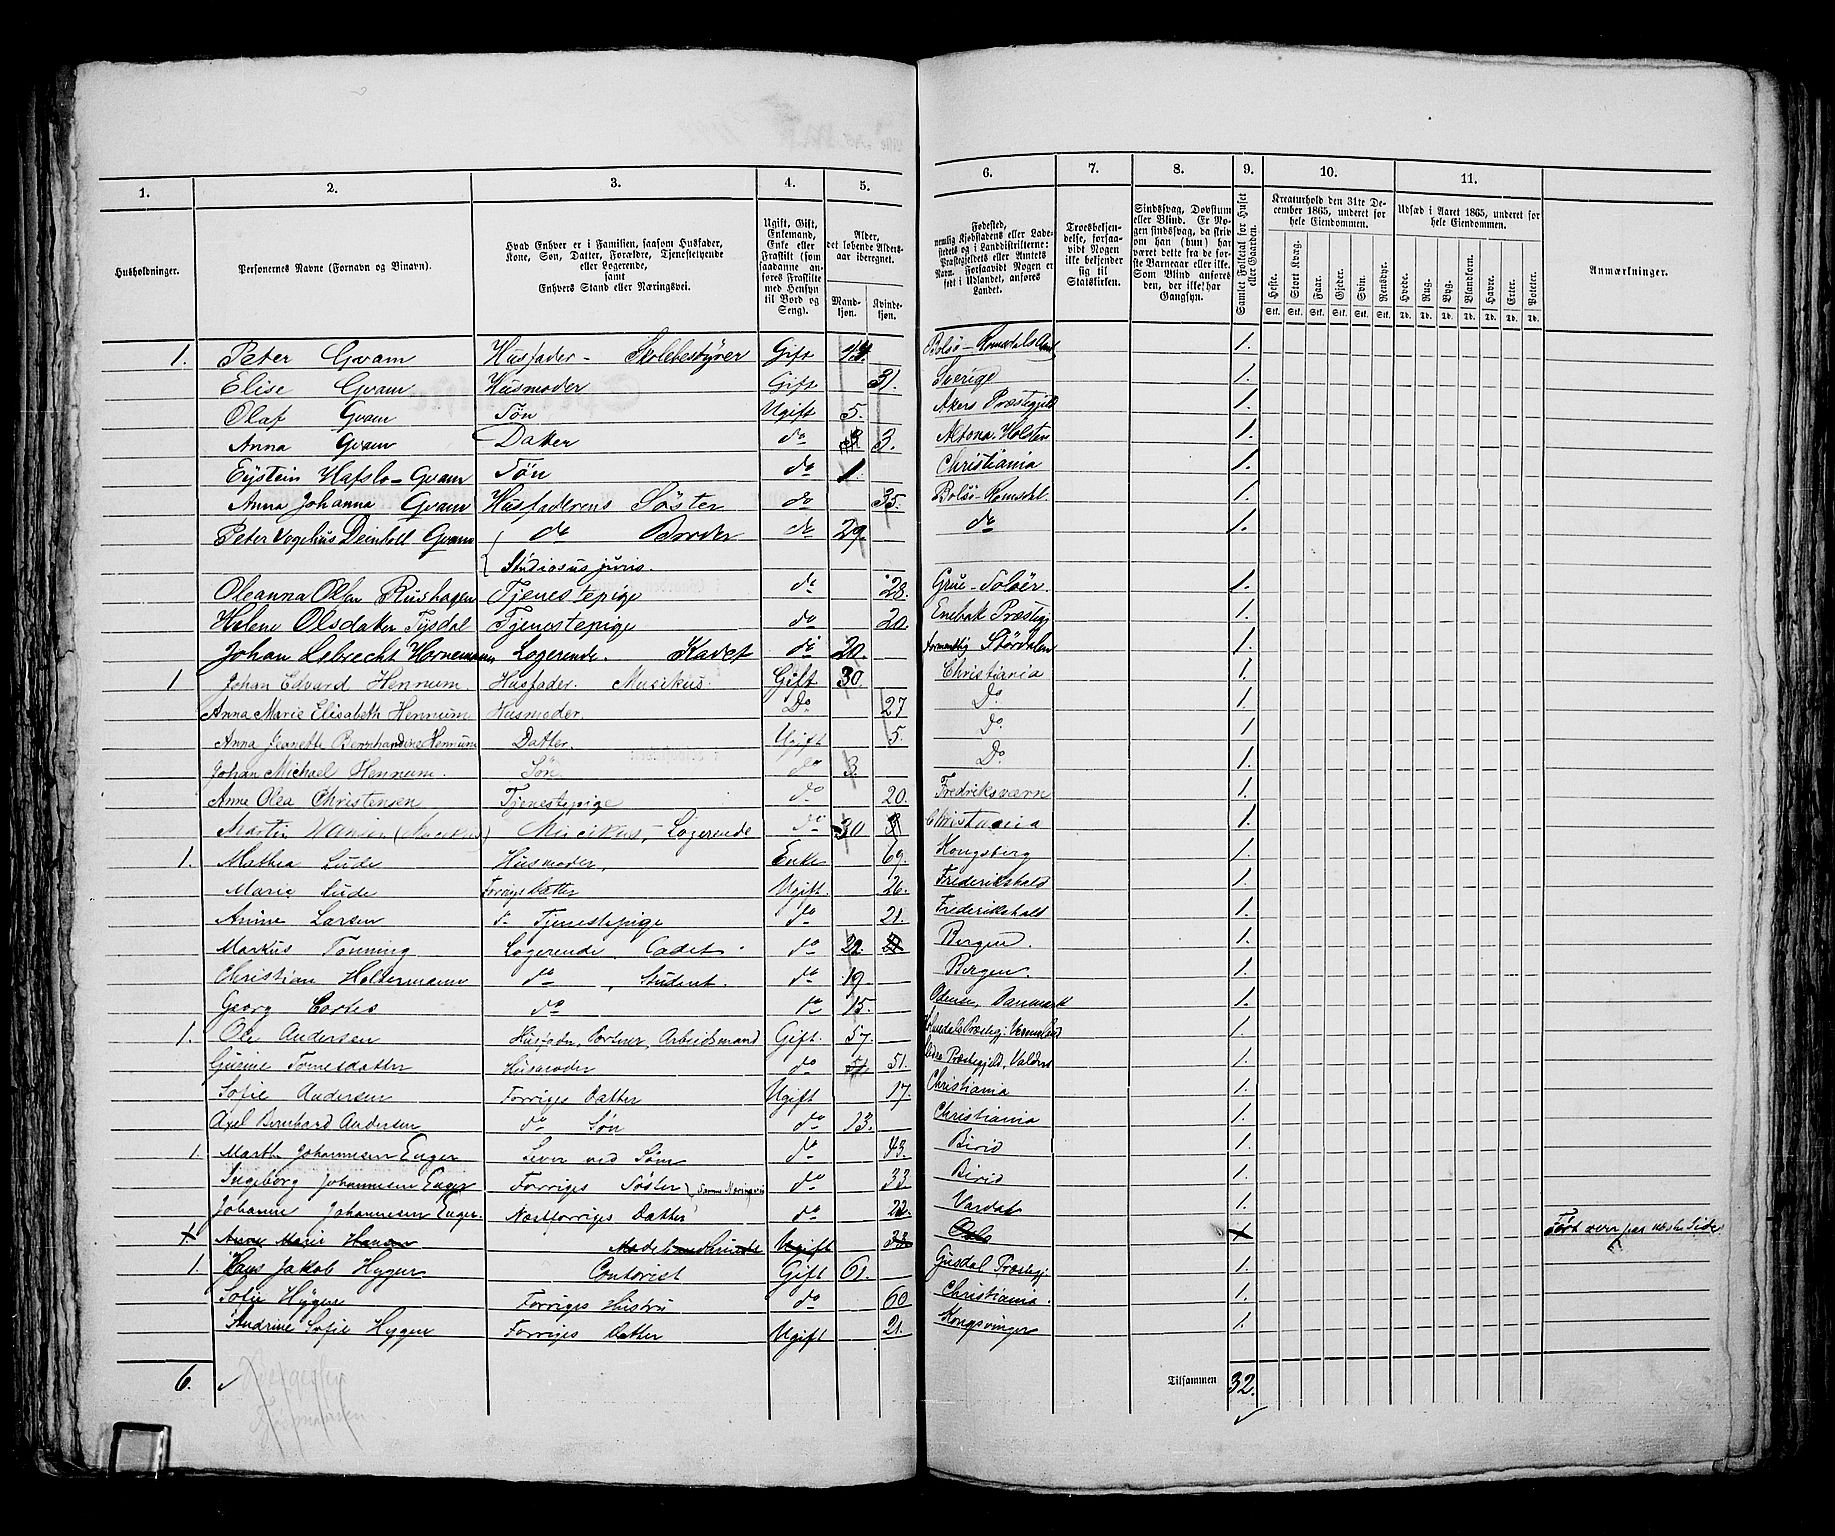 1. 2. 3. 4. 5. 6. 7. 8. 9. 10. 11.
Husholdninger.
Personernes Navne (Fornavn og Binavn).
Hvad Enhver er i Familien, saasom Husfader,
Kone, Søn, Datter, Forældre, Tjenestetyende
eller Logerende,
samt
Enhvers Stand eller Næringsvei.
Ugift, Gift,
Enkemand,
Enke eller
Fraskilt (som
saadanne an-
føres Fraskilte
med Hensyn
til Bord og
Seng).
Alder,
det løbende Alders-
aar iberegnet.
Mand-
kjøn.
Kvinde-
kjøn.
Fødested,
nemlig Kjøbstadens eller Lade-
stedets og i Landdistrikterne:
Præstegjeldets eller Amtets
Navn. Forsaavidt Nogen er
født i Udlandet, anføres
Landet.
Troesbekjen-
delse, forsaa-
vidt Nogen
ikke bekjender
sig til
Statskirken.
Sindssvag, Døvstum
eller Blind. Er No-
gen sindssvag, da skriv
om han (hun) har
været dette fra de før-
ste Barneaar eller ikke.
Som Blind anføres
den, der ikke har
Gangsyn.
Samlet Folketal for Huset
eller Gaarden.
Kreaturhold den 31te De-
cember 1865, underet for
hele Eiendommen.
Heste. Stort Kvæg. Faar. Gjeder. Svin. Rensdyr.
Stk. Stk. Stk. Stk. Stk. Stk.
Udsæd i Aaret 1865, underet for
hele Eiendommen.
Hvede. Rug. Byg. Blandkorn. Havre. Erter. Poteter.
Td. Td. Td. Td. Td. Td. Td.
Anmærkninger.
1. Peter Gvam Husfader - Skolebestyrer Gift Bolsø - Romsdals Amt 1.
Elise Gvam Husmoder Gift 31. Sverige 1.
Olaf Gvam Søn Ugift 5. Akers Præstegjeld 1.
Anna Gvam Datter do 3. Altona. Holsten 1.
Eystein Hafslo-Gvam Søn do 1. Christiania 1.
Anna Johanna Gvam Husfaderens Søster do 35. Bolsø - Romsdal. 1.
Peter Vogelius Deinboll Gvam do Broder do 29. do 1.
Studiosus juris.
Oleanna Olsen Rushagen Tjenestepige do 28. Grue - Soløer. 1.
Helene Olsdatter Tysdal Tjenestepige do 20. Enebak Præstegj 1.
Johan Lebrecht Hornemann Logerende. Kadet do 20. Størdalen 1.
1 Johan Edvard Hennum. Husfader. Musikus. Gift 30. Christiania 1.
Anna Marie Elisabeth Hennum Husmoder. Do 27 Do. 1
Anna Jeanette Bernhardine Hennum Datter. Ugift 5. Do. 1
Johan Michael Hennum. Søn. do 3. Do. 1.
Anne Olea Christensen Tjenestepige do. 20. Fredriksværn 1.
Martin Hansen (Musikus) Musikus, Logerende do 30 Christiania 1.
1. Mathea Lude Husmoder, Enke 69. Kongsberg 1.
Marie Lude Forriges Datter Ugift. 26. Frederikshald 1.
Anine Larsen Tjenestepige do 21. Frederikshald 1.
Markus Tonning Logerende, Cadet. do 22. Bergen. 1.
Christian Holtermann do, Student. do 19. Bergen. 1.
Georg Cortes do do 15. Odense, Danmark 1.
1. Ole Andersen Husfader, Portner, Arbeidsmand Gift. 57. 1.
Gurine Tomesdatter Husmoder do 51. Præstegjeld, Valders 1.
Sofie Andersen Forriges Datter Ugift 17. Christiania 1.
Axel Bernhard Andersen do Søn do 13. Christiania 1.
1. Marth Johannesen Enger Lever ved Søm do 43. Birid 1.
Ingeborg Johannesen Enger Forriges Søster (Samme Næringsvei do 33 Birid 1.
Johanne Johannesen Enger. Næstforriges Datter do 22. Vardal 1.
Anne Marie Hansen Ugift Oslo Ført over paa næste Side
1. Hans Jakob Hygen Contorist Gift 61. Gusdal Præstegj 1.
Sofie Hygen Forriges Hustru do 60 Christiania. 1.
Andrine Sofie Hygen Forriges Datter Ugift 21. Kongsvinger 1.
6. Tilsammen 32.